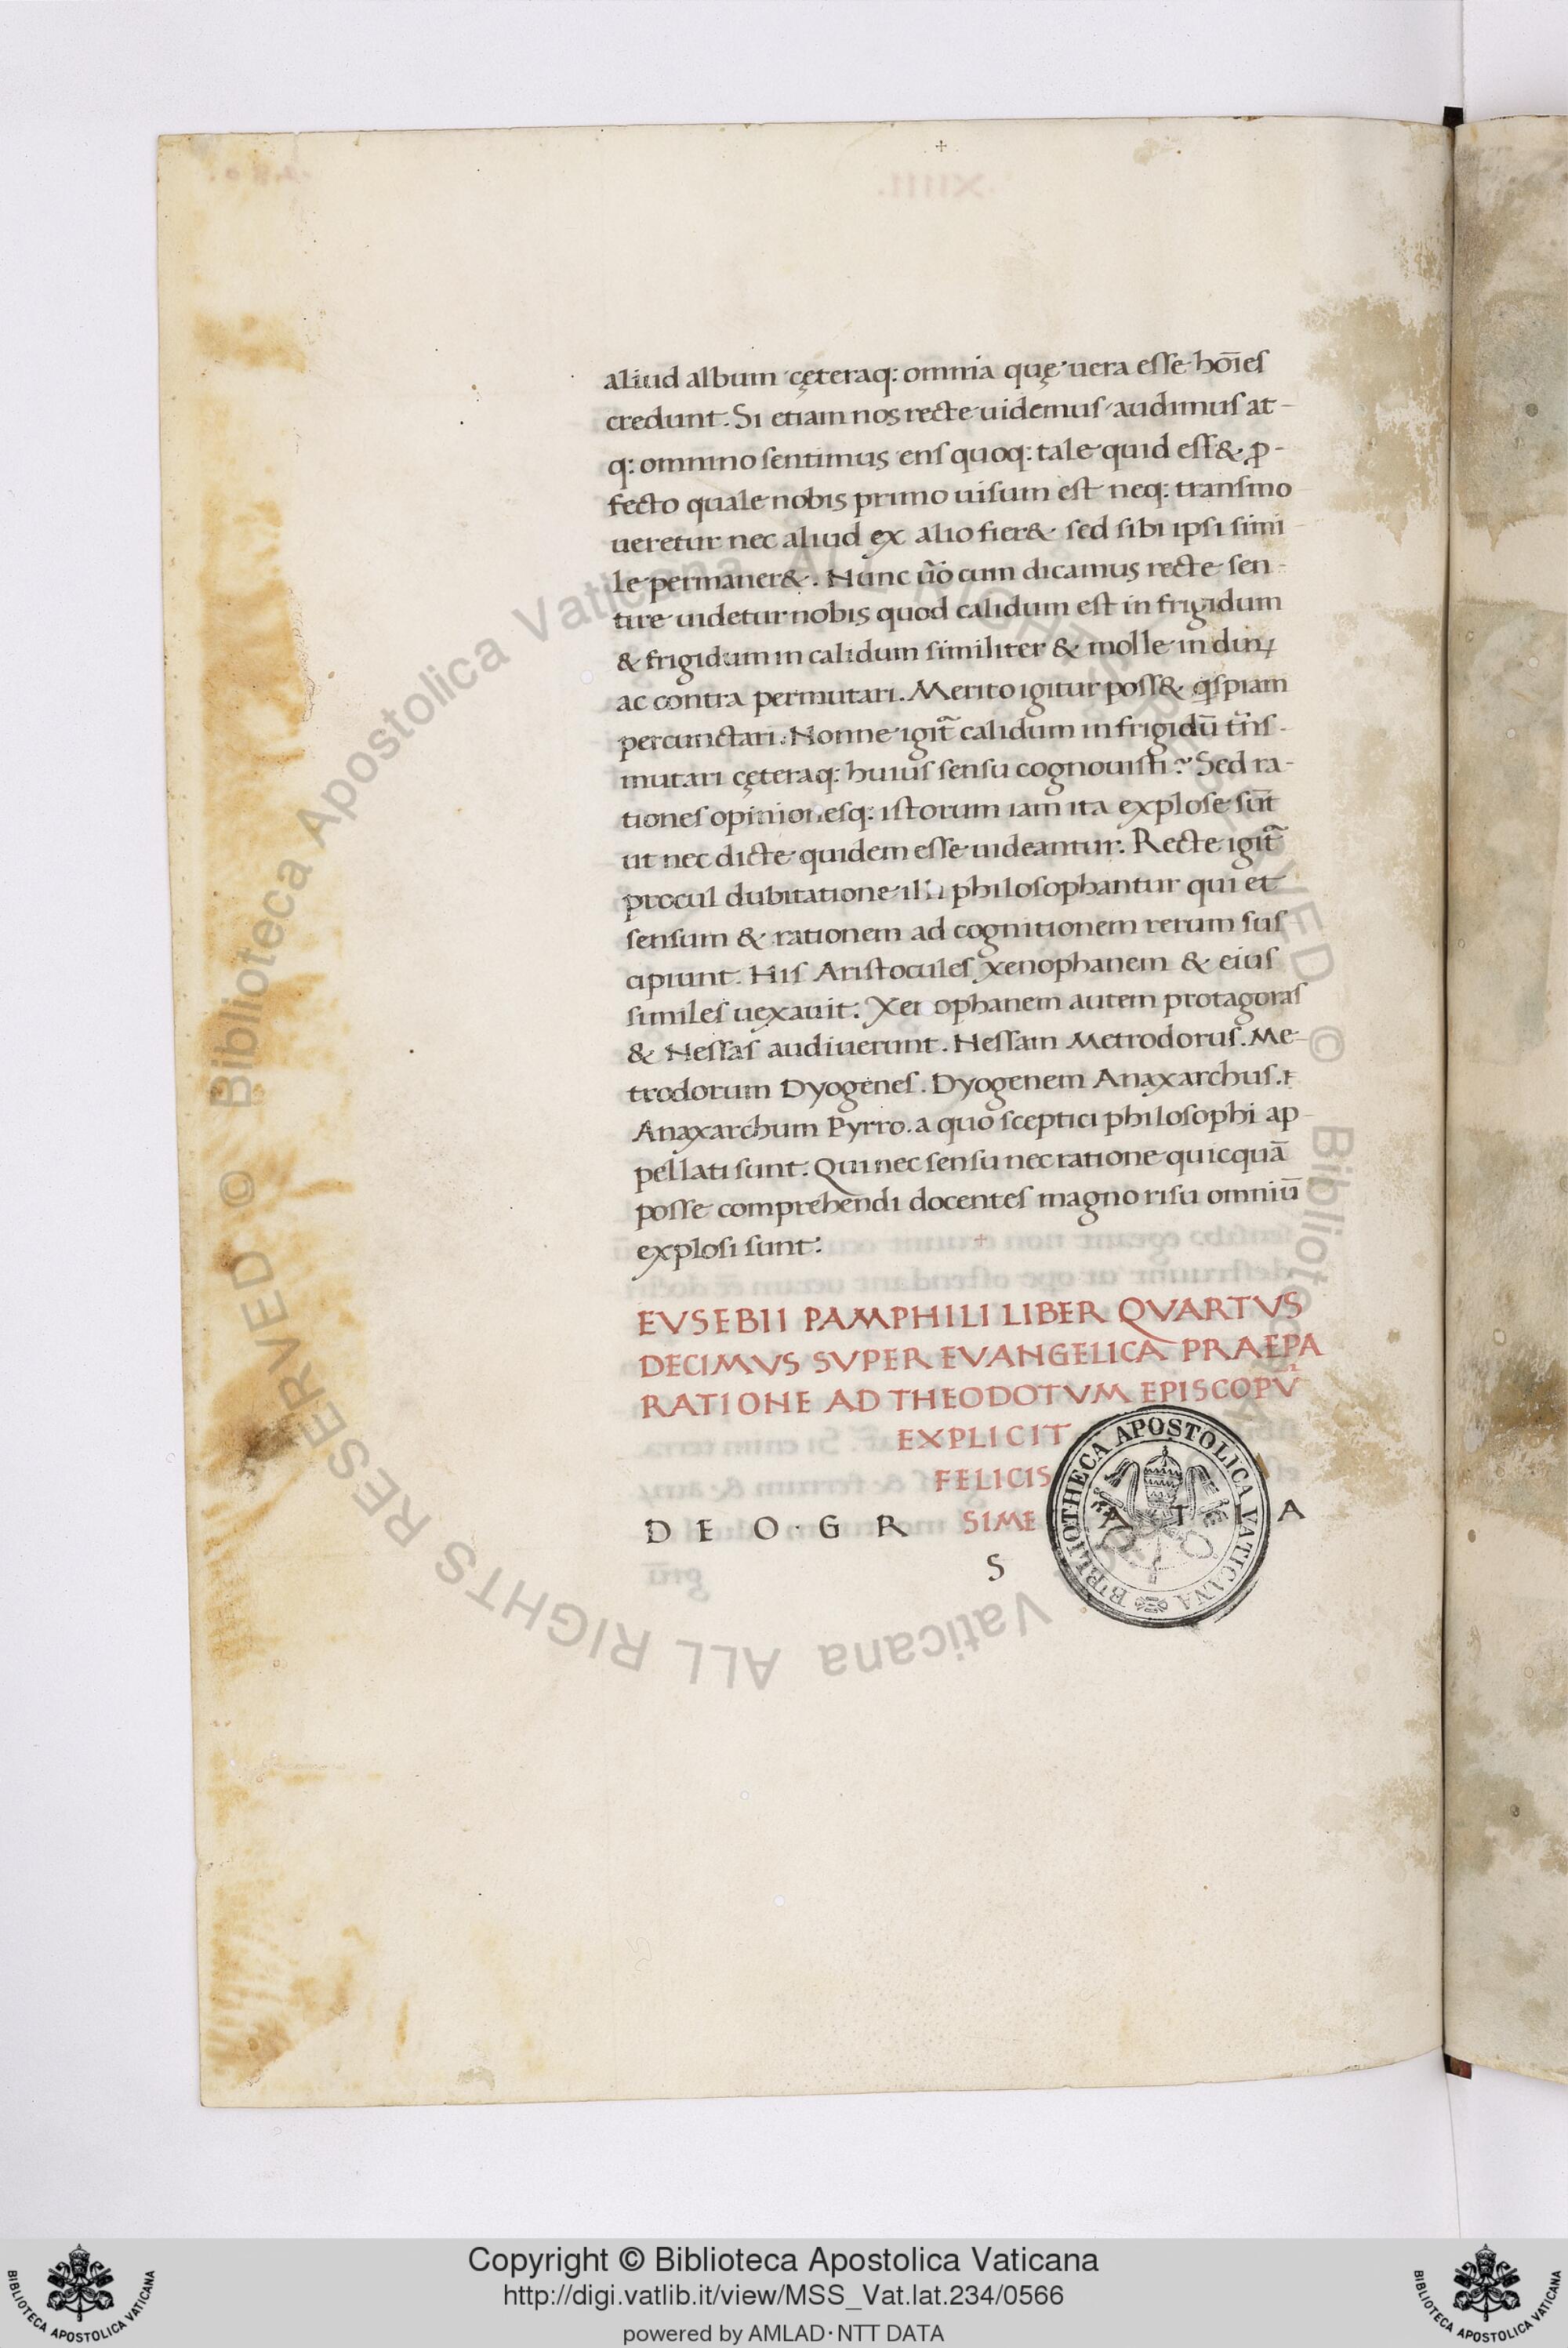 aliud album cęteraq: omnia quę uera esse hōies
credunt. Si etiam nos recte uidemus audimus at-
q: omnino sentimus ens quoq: tale quid ess& ꝓ-
fecto quale nobis primo uisum est neq: transmo
ueretur nec aliud ex alio fier& sed sibi ipsi simi-
le permaner&. Nunc ūo cum dicamus recte sen-
tire uidetur nobis quod calidum est in frigidum
& frigidum in calidum similiter & molle in duꝝ
ac contra permutari. Merito igitur poss& qspiam
percunctari. Nonne igit̃ calidum in frigidū trñs-
mutari cęteraq: huius sensu cognouisti? Sed ra-
tiones opinionesq: istorum iam ita explose sūt
ut nec dicte quidem esse uideantur. Recte igit̃
procul dubitatione illi philosophantur qui et
sensum & rationem ad cognitionem rerum sus
cipiunt. His Aristocules xenophanem & eius
similes uexauit: Xenophanem autem protagoras
& Nessas audiuerunt. Nessam Metrodorus. Me-
trodorum Dyogenes. Dyogenem Anaxarchus.
Anaxarchum Pyrro. a quo sceptici philosophi ap-
pellati sunt. Qui nec sensu nec ratione quicquā
posse comprehendi docentes magno risu omniū
explosi sunt:
EVSEBII PAMPHILI LIBER QVARTVS
DECIMVS SVPER EVANGELICA PRAEPA
RATIONE AD THEODOTVM EPISCOPV̄
EXPLICIT
FELICIS
SIME
D E O · G R A T I A
S
BIBLIOTHECA APOSTOLICA VATICANA
© Biblioteca Apostolica Vaticana ALL RIGHTS RESERVED
© Biblioteca Apostolica Vaticana ALL RIGHTS RESERVED
Copyright © Biblioteca Apostolica Vaticana
http://digi.vatlib.it/view/MSS_Vat.lat.234/0566
powered by AMLAD·NTT DATA
BIBLIOTECA APOSTOLICA VATICANA
BIBLIOTECA APOSTOLICA VATICANA